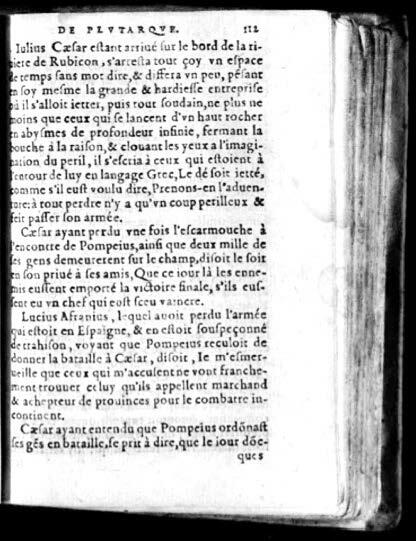 DE PLVTARQVE. 112
Iulius Cæsar estant arriué sur le bord de la ri-
uiere de Rubicon, s'arresta tout çoy vn espace
de temps sans mot dire, & differa vn peu, pésant
en soy mesme la grande & hardiesse entreprise
où il s'alloit ietter, puis tout soudain, ne plus ne
moins que ceux qui se lancent d'vn haut rocher
en abysmes de profondeur infinie, fermant la
bouche à la raison, & clouant les yeux a l'imagi-
nation du peril, il s'escria à ceux qui estoient à
l'entour de luy en langage Grec, Le dé soit ietté,
comme s'il eust voulu dire, Prenons-en l'aduen-
ture: à tout perdre n'y a qu'vn coup perilleux &
feit passer son armée.
Cæsar ayant perdu vne fois l'escarmouche à
l'encontre de Pompeius, ainsi que deux mille de
ses gens demeurerent sur le champ, disoit le soir
en son priué à ses amis, Que ce iour là les enne-
mis eussent emporté la victoire finale, s'ils eus-
sent eu vn chef qui eost sceu vaincre.
Lucius Afranius, lequel auoit perdu l'armée
qui estoit en Espaigne, & en estoit souspeçonné
de trahison, voyant que Pompeius reculoit de
donner la bataille à Cæsar, disoit, Ie m'esmer-
ueille que ceux qui m'accusent ne vont franche-
ment trouuer celuy qu'ils appellent marchand
& achepteur de prouinces pour le combatre in-
continent.
Cæsar ayant entendu que Pompeius ordōnast
ses gēs en bataille, se prit à dire, que le iour dōc-
ques